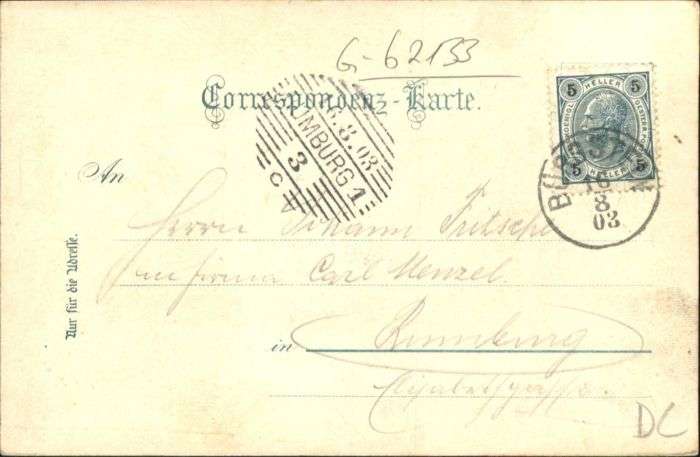 G-62133
Correspondenz-Karte.
5 HELLER 5
5 HELLER 5
6.8.03
RUMBURG 1
3
16
8
03
An
Herrn Johann Fritsche
in firma Carl Menzel
in Rumburg
Nur für die Adresse.
DC